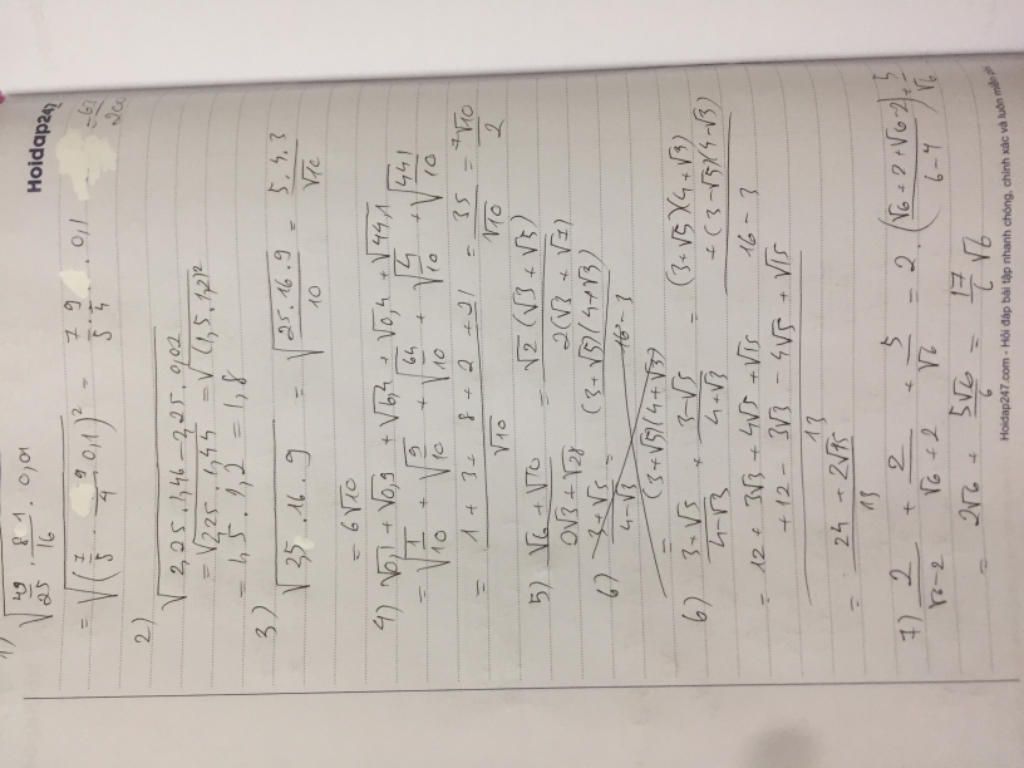 Hoidap247
1)
√(49/25 . 81/16 . 0,01)
= √((7/5 . 9/4 . 0,1)²) = 7/5 . 9/4 . 0,1 = 63/200
2)
√(2,25 . 1,46 - 2,25 . 0,02)
= √(2,25 . 1,44) = √((1,5 . 1,2)²)
= 1,5 . 1,2 = 1,8
3)
√(2,5 . 16 . 9) = √(25 . 16 . 9 / 10) = 5 . 4 . 3 / √10
= 6√10
4) √0,1 + √0,9 + √6,4 + √0,4 + √44,1
= √(1/10) + √(9/10) + √(64/10) + √(4/10) + √(441/10)
= (1 + 3 + 8 + 2 + 21)/√10 = 35/√10 = 7√10/2
5) (√6 + √10)/(2√3 + √28) = √2(√3 + √5)/2(√3 + √7)
6) (3+√5)/(4-√3) = (3+√5)(4+√3)/16-3
= (3+√5)(4+√3)
6) (3+√5)/(4-√3) + (3-√5)/(4+√3) = ((3+√5)(4+√3) + (3-√5)(4-√3))/(16-3)
= (12 + 3√3 + 4√5 + √15 + 12 - 3√3 - 4√5 + √15)/13
= (24 + 2√15)/13
7) 2/(√6-2) + 2/(√6+2) + 5/√6 = 2 . ((√6+2+√6-2)/(6-4)) + 5/√6
= 2√6 + 5√6/6 = 17/6 √6
Hoidap247.com - Hỏi đáp bài tập nhanh chóng, chính xác và luôn miễn phí